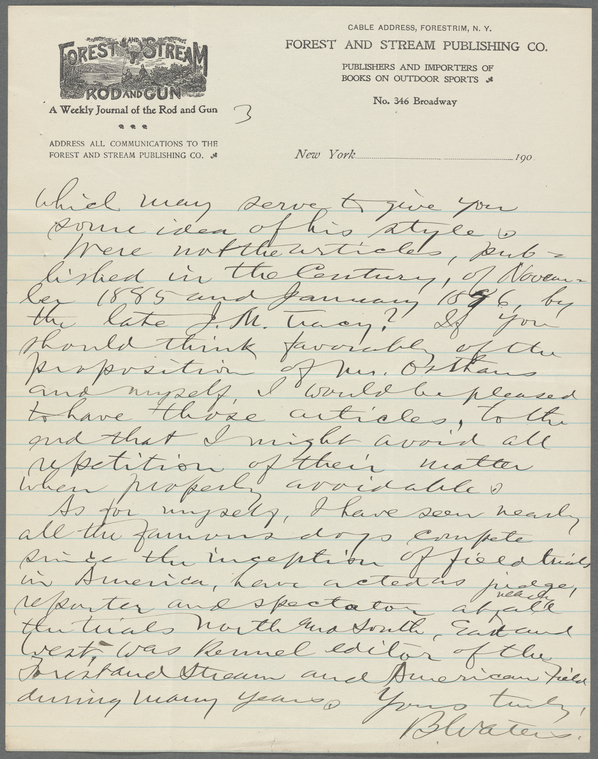 CABLE ADDRESS, FORESTRIM, N. Y.
FOREST AND STREAM PUBLISHING CO.
PUBLISHERS AND IMPORTERS OF
BOOKS ON OUTDOOR SPORTS
No. 346 Broadway
FOREST AND STREAM
ROD AND GUN
A Weekly Journal of the Rod and Gun
3
ADDRESS ALL COMMUNICATIONS TO THE
FOREST AND STREAM PUBLISHING CO.
New York 190
which may serve to give you
some idea of his style.
Were not the articles, pub-
lished in the Century, of Novem-
ber 1885 and January 1896, by
the late J. M. Tracy? If you
should think favorably of the
proposition of Mr. Osthaus
and myself, I would be pleased
to have those articles, to the
end that I might avoid all
repetition of their matter
when properly avoidable.
As for myself, I have seen nearly
all the famous dogs compete
since the inception of field trials
in America, have acted as judge,
reporter and spectator at nearly all
the trials North and South, East and
West, was Kennel editor of the
Forest and Stream and American Field
during many years. Yours truly,
B. Waters.